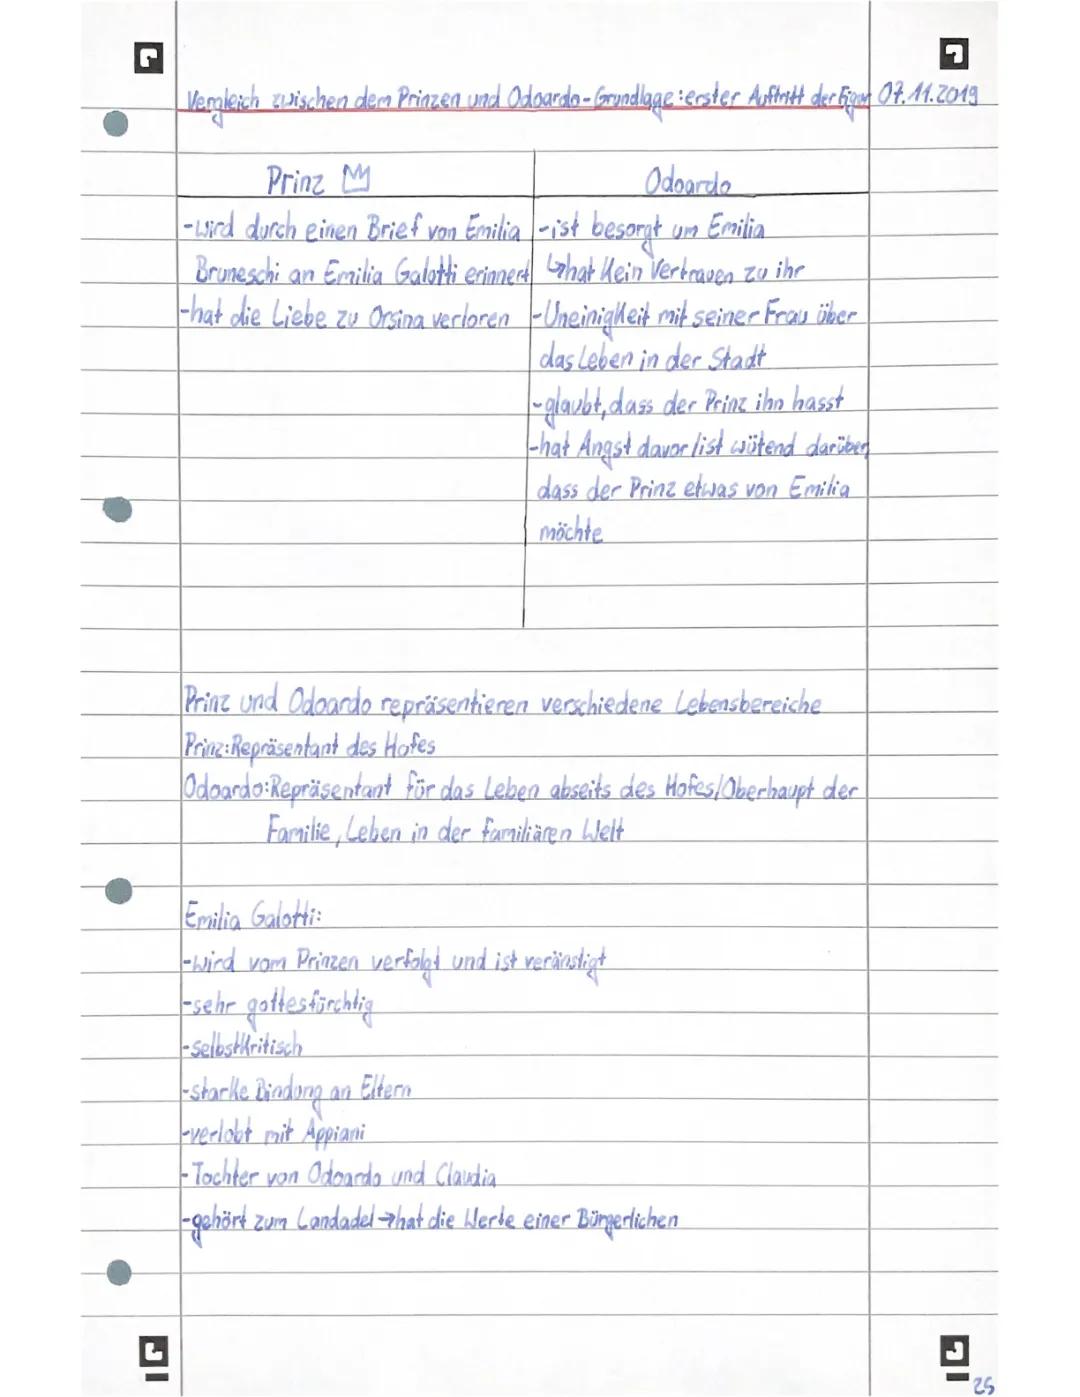 Vergleich zwischen dem Prinzen und Odoardo-Grundlage: erster Auftritt der Figur 07.11.2019
Prinz
-wird durch einen Brief von Emilia
Bruneschi an Emilia Galotti erinnert
-hat die Liebe zu Orsina verloren
Odoardo
-ist besorgt um Emilia
↳hat kein Vertrauen zu ihr
-Uneinigkeit mit seiner Frau über
das Leben in der Stadt
-glaubt, dass der Prinz ihn hasst
-hat Angst davor/ist wütend darüber,
dass der Prinz etwas von Emilia
möchte
Prinz und Odoardo repräsentieren verschiedene Lebensbereiche
Prinz: Repräsentant des Hofes
Odoardo: Repräsentant für das Leben abseits des Hofes/Oberhaupt der
Familie, Leben in der familiären Welt
Emilia Galotti:
-wird vom Prinzen verfolgt und ist veränstigt
-sehr gottesfürchtig
-selbstkritisch
-starke Bindung an Eltern
-verlobt mit Appiani
-Tochter von Odoardo und Claudia
-gehört zum Landadel→hat die Werte einer Bürgerlichen
25